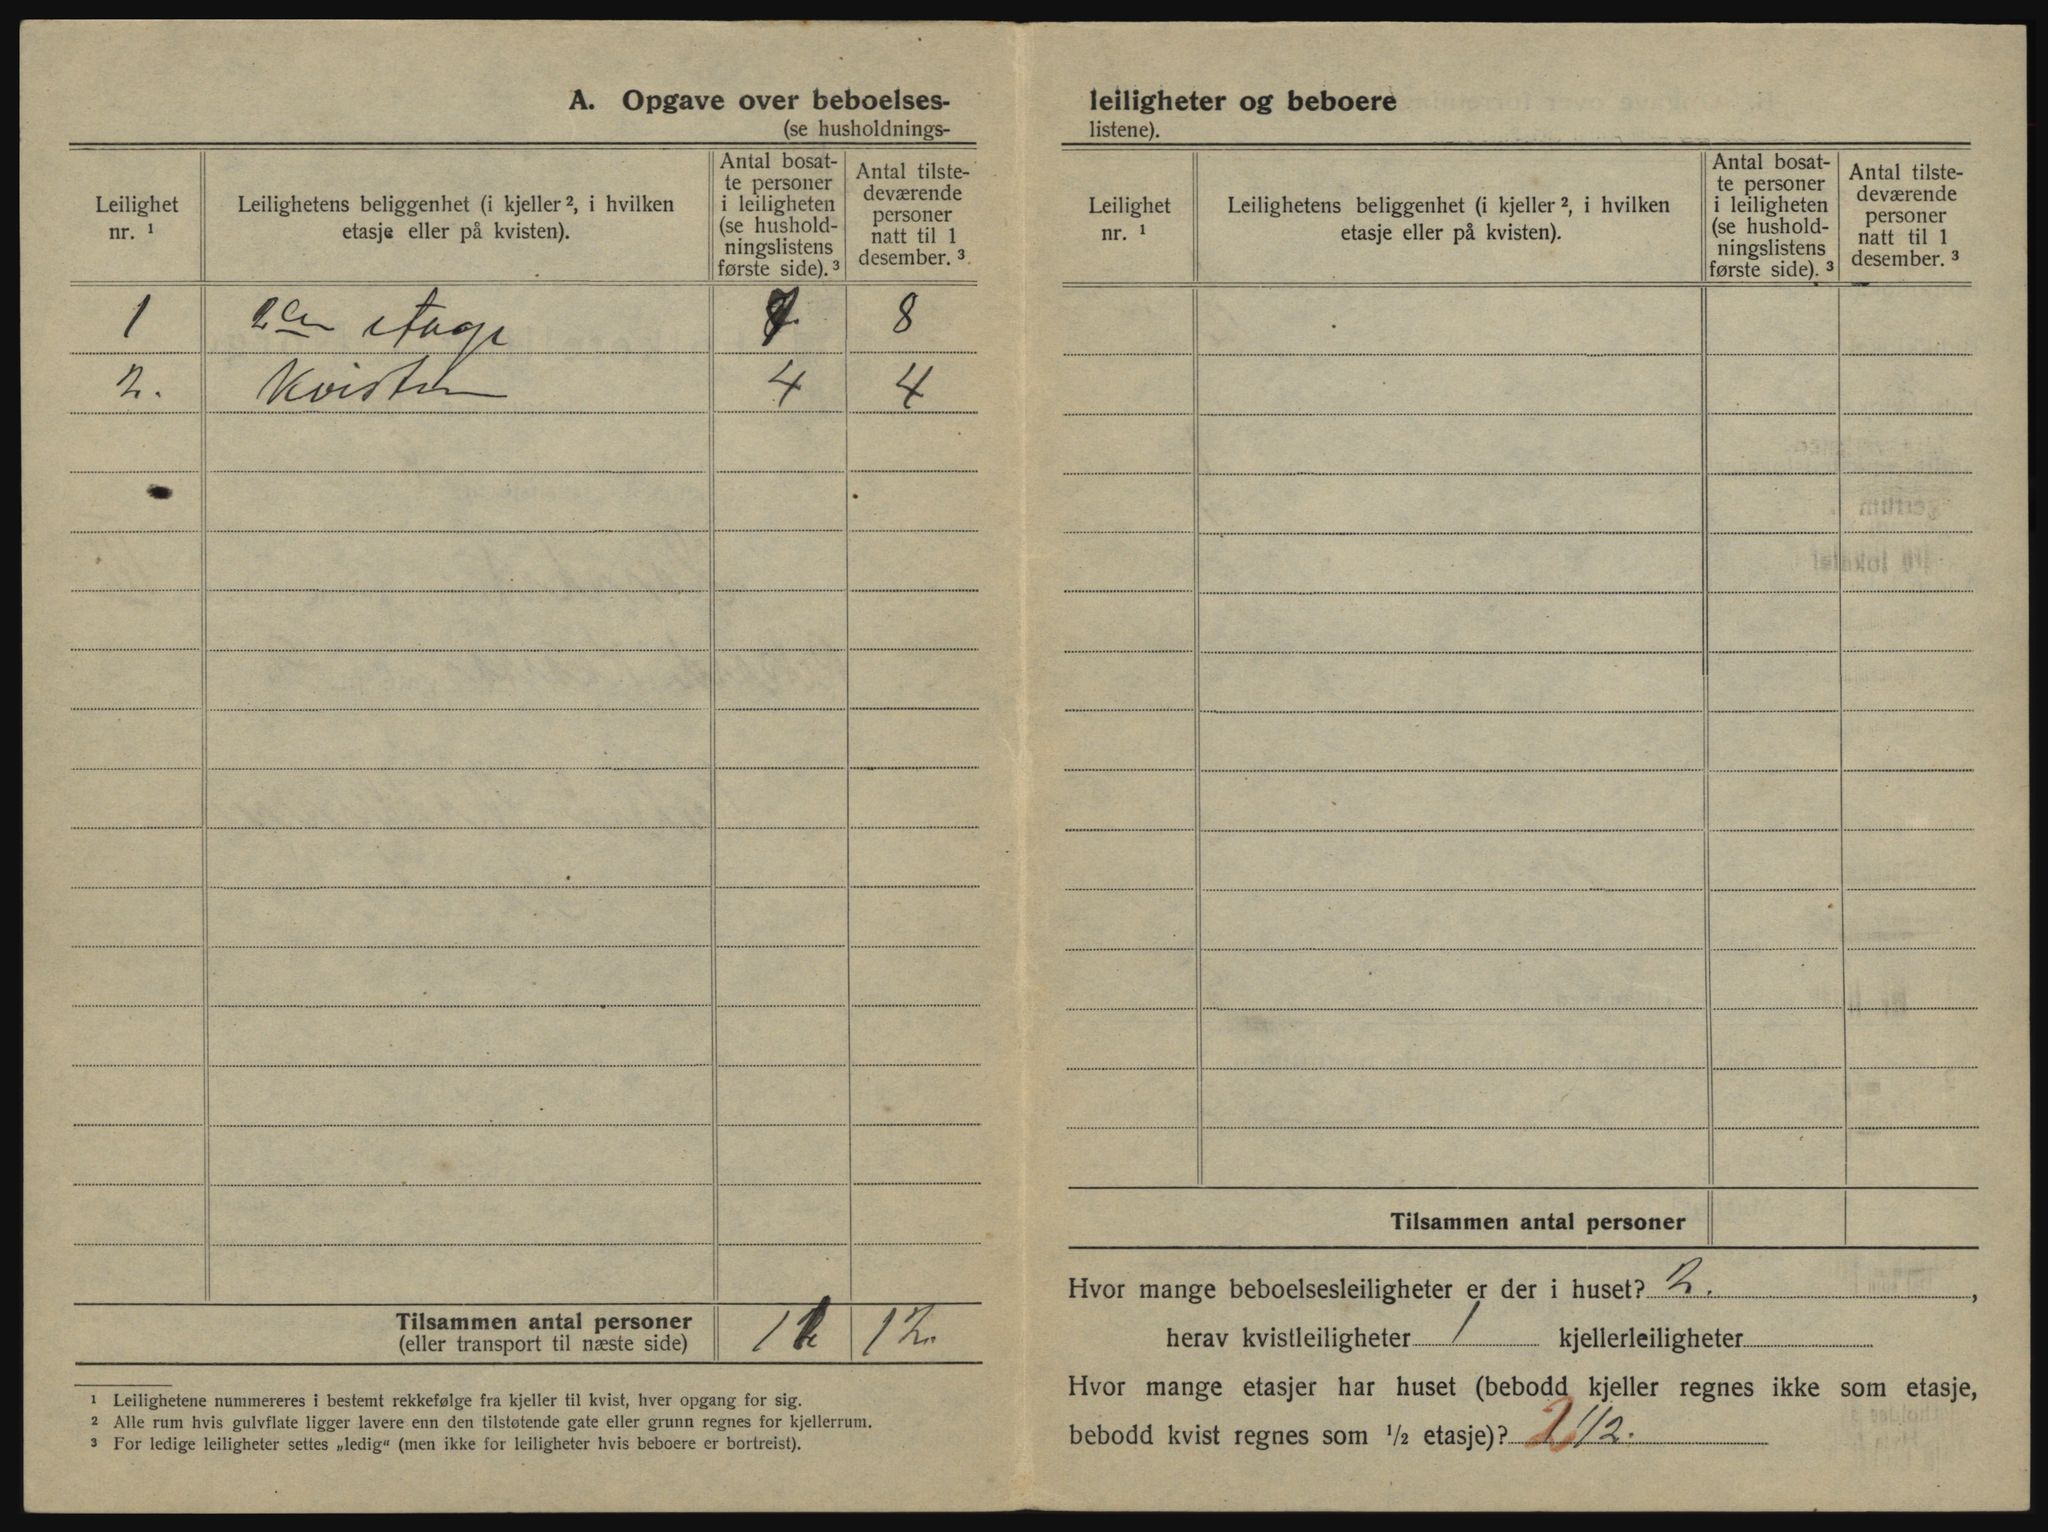 A. Opgave over beboelses-
(se husholdnings-
Leilighet nr. ¹
Leilighetens beliggenhet (i kjeller ², i hvilken etasje eller på kvisten).
Antal bosat-
te personer
i leiligheten
(se hushold-
ningslistens
første side). ³
Antal tilste-
deværende
personer
natt til 1
desember. ³
1 2den etage 8
2. Kvisten 4 4
Tilsammen antal personer 12 12.
(eller transport til næste side)
¹ Leilighetene nummereres i bestemt rekkefølge fra kjeller til kvist, hver opgang for sig.
² Alle rum hvis gulvflate ligger lavere enn den tilstøtende gate eller grunn regnes for kjellerrum.
³ For ledige leiligheter settes „ledig“ (men ikke for leiligheter hvis beboere er bortreist).
leiligheter og beboere
listene).
Leilighet nr. ¹
Leilighetens beliggenhet (i kjeller ², i hvilken etasje eller på kvisten).
Antal bosat-
te personer
i leiligheten
(se hushold-
ningslistens
første side). ³
Antal tilste-
deværende
personer
natt til 1
desember. ³
Tilsammen antal personer
Hvor mange beboelsesleiligheter er der i huset? 2.,
herav kvistleiligheter 1 kjellerleiligheter
Hvor mange etasjer har huset (bebodd kjeller regnes ikke som etasje,
bebodd kvist regnes som ½ etasje)? 2 1/2.